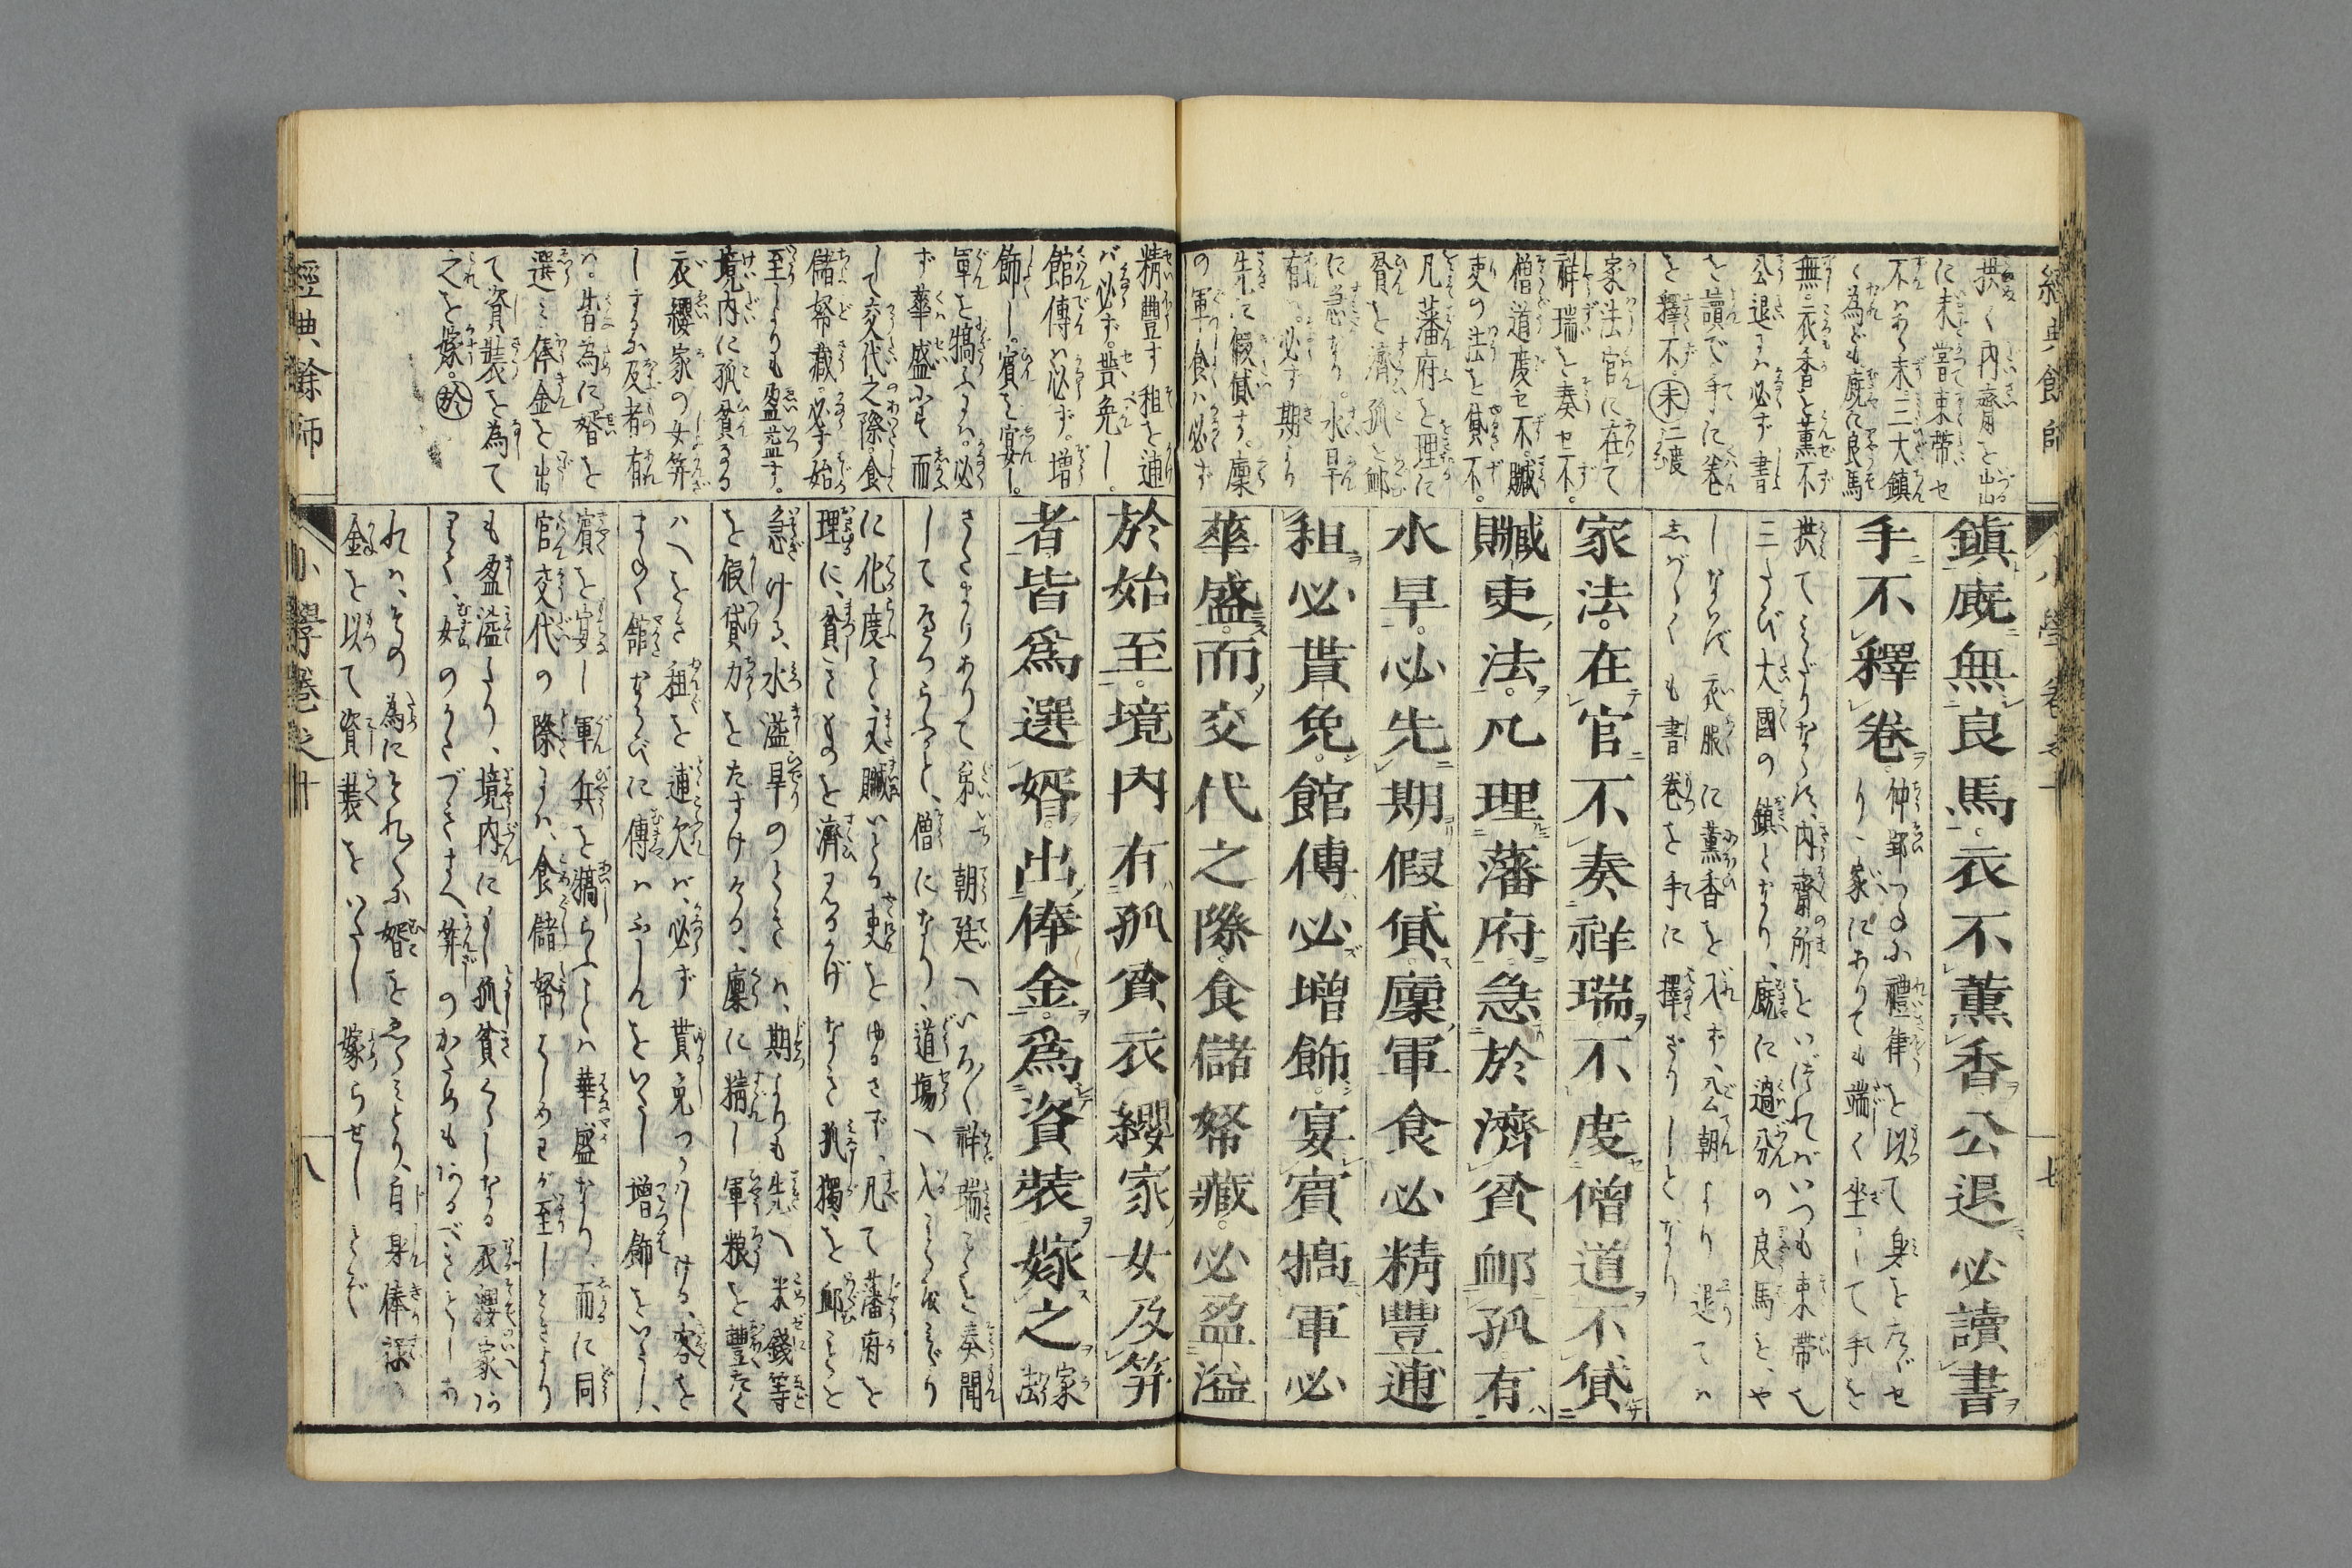 經典餘師
小學卷之十
七
拱く内齋を出る
に未嘗束帶セ
不ハあら未三大鎮
く為ども廐に良馬
無。衣香を薫不
公退すハ必ず書
を讀で手に卷
を釋不。㊍二度
家法官に在て
祥瑞を奏セ不。
僧道度セ不。贓
吏の法を貸不。
凡藩府を理に
貧を濟孤を卹
に急なり。水旱
有。必す期より
先に假貸す。廩
の軍食ハ必ず
鎮廐無良馬。衣不薫香公退必讀書
手不釋卷。
仲郢つねに禮律を以て身をたがせ
り、家にありても端く坐して手を
拱てみだりならず、内齋所をいづれバいつも束帶セ
三たび大國の鎮となり、廐に過分の良馬を、や
しなはず衣服に薫香を入ず、公朝より退てハ
しバらくも書卷を手に擇ざりしとなり
家法。在官不奏祥瑞。不度僧道不貸
贓吏法。凡理藩府。急於濟貧卹孤。有
水旱。必先期假貸。廩軍食必精豐逋
租必貰免。館傳必增飾。宴賓犒軍必
華盛。而交代之際。食儲帑藏。必盈溢
精豐す租を逋
バ必ず。貰免し。
館傳ハ必ず。增
飾し。賓を宴し。
軍を犒ふるハ。必
ず華盛にす而
して交代之際。食
儲帑藏。必ず始
至しよりも盈溢す。
境内に孤貧なる
衣纓家の女笄
しするに及者有
ハ。皆為に婿を
選ミ俸金を出
て資裝を為て
之を嫁。㊄
於始至。境内有孤貧衣纓家女及笄
者皆為選婿。出俸金。為資裝嫁之
家法
さだまりありて第一朝廷へいろ〱祥瑞ことを奏聞
して
に化度せず、又贓いとる吏をゆるさず、凡て藩府を
理に、貧きものを濟よるべなき孤獨を卹ことを
急ける、水溢旱のときハ、期よりも先へ米錢等
を假貸力をたすけける、廩に精し軍粮を豐たく
ハへをき租を逋欠バ、必ず貰免つかしける、客を
まねく館ならびに傳ハふしんをいたし增飾をいたし、
賓を宴し軍兵を犒らふとハ華盛なり、而に同
官交代の際にハ、食儲帑をしめわが至しときより
も盈溢たり、境内にもし孤貧くらしなる衣纓家の
わく、女のかたづきさへ、笄のかためもあるべきとしな
れハ、その為にそれ〱に婿をゑらミとり、自身俸祿の
金を以て資裝をいたし嫁らせしとぞ
經典餘師
小學卷之十
八